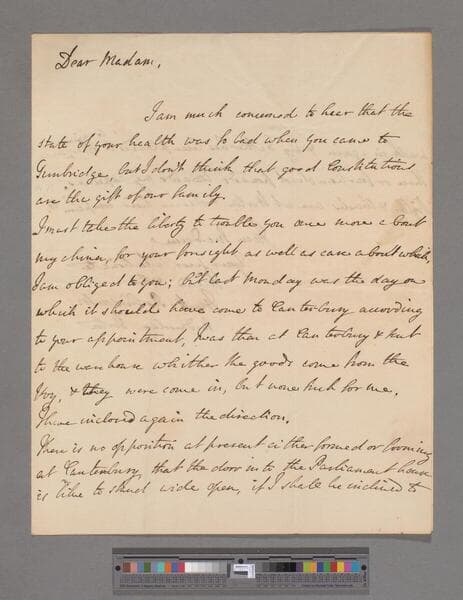 Dear Madam,
I am much concerned to hear that the
state of your health was so bad when you came to
Tunbridge, but I don't think that good Constitutions
are the gift of our family.
I must take the liberty to trouble you once more about
my china, for your foresight as well as care about which
I am obliged to you; but last Monday was the day on
which it should have come to Canterbury according
to your appointment, I was then at Canterbury & sent
to the warehouse whither the goods come from the
Hoy, & they were come in, but none such for me,
I have inclosed again the direction.
There is no opposition at present either formed or forming
at Canterbury, that the door into the Parliament house
is like to stand wide open, if I shall be inclined to